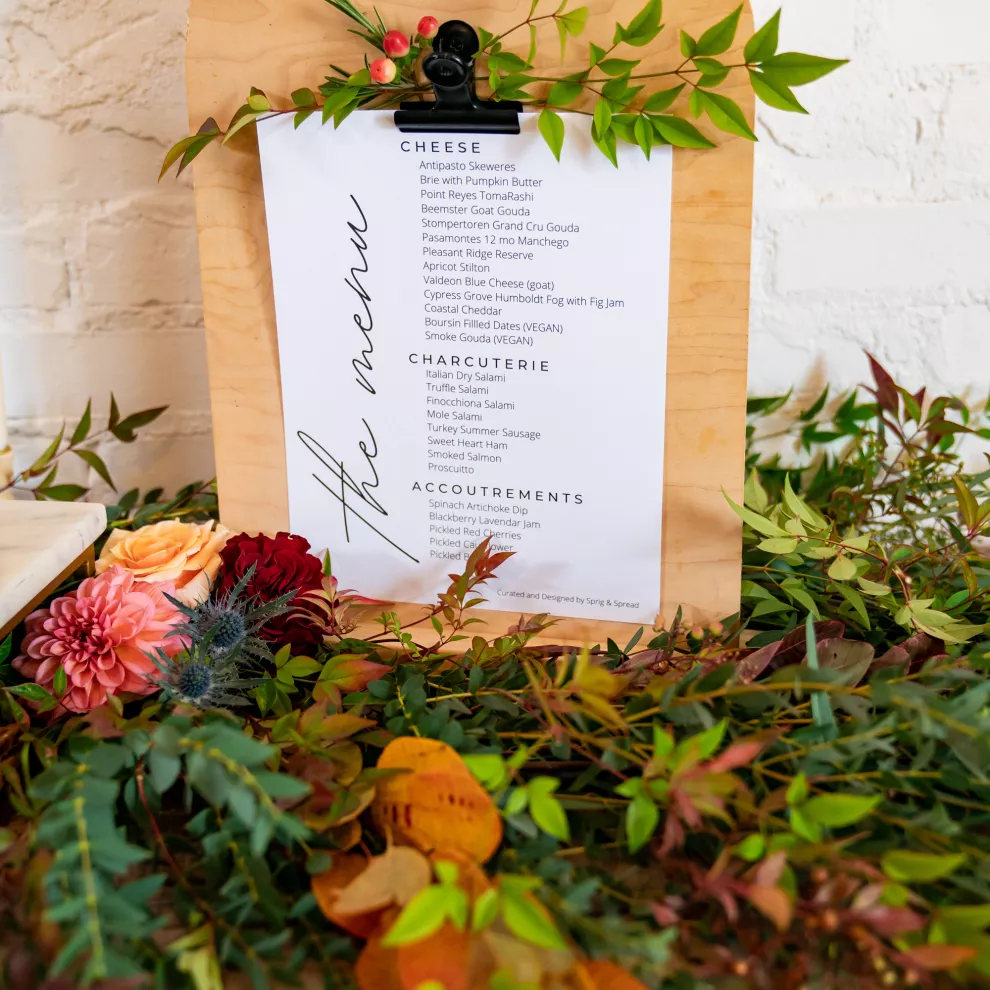 the menu
CHEESE
Antipasto Skeweres
Brie with Pumpkin Butter
Point Reyes TomaRashi
Beemster Goat Gouda
Stompertoren Grand Cru Gouda
Pasamontes 12 mo Manchego
Pleasant Ridge Reserve
Apricot Stilton
Valdeon Blue Cheese (goat)
Cypress Grove Humboldt Fog with Fig Jam
Coastal Cheddar
Boursin Fillled Dates (VEGAN)
Smoke Gouda (VEGAN)
CHARCUTERIE
Italian Dry Salami
Truffle Salami
Finocchiona Salami
Mole Salami
Turkey Summer Sausage
Sweet Heart Ham
Smoked Salmon
Proscuitto
ACCOUTREMENTS
Spinach Artichoke Dip
Blackberry Lavendar Jam
Pickled Red Cherries
Pickled
Pickled
Curated and Designed by Sprig & Spread